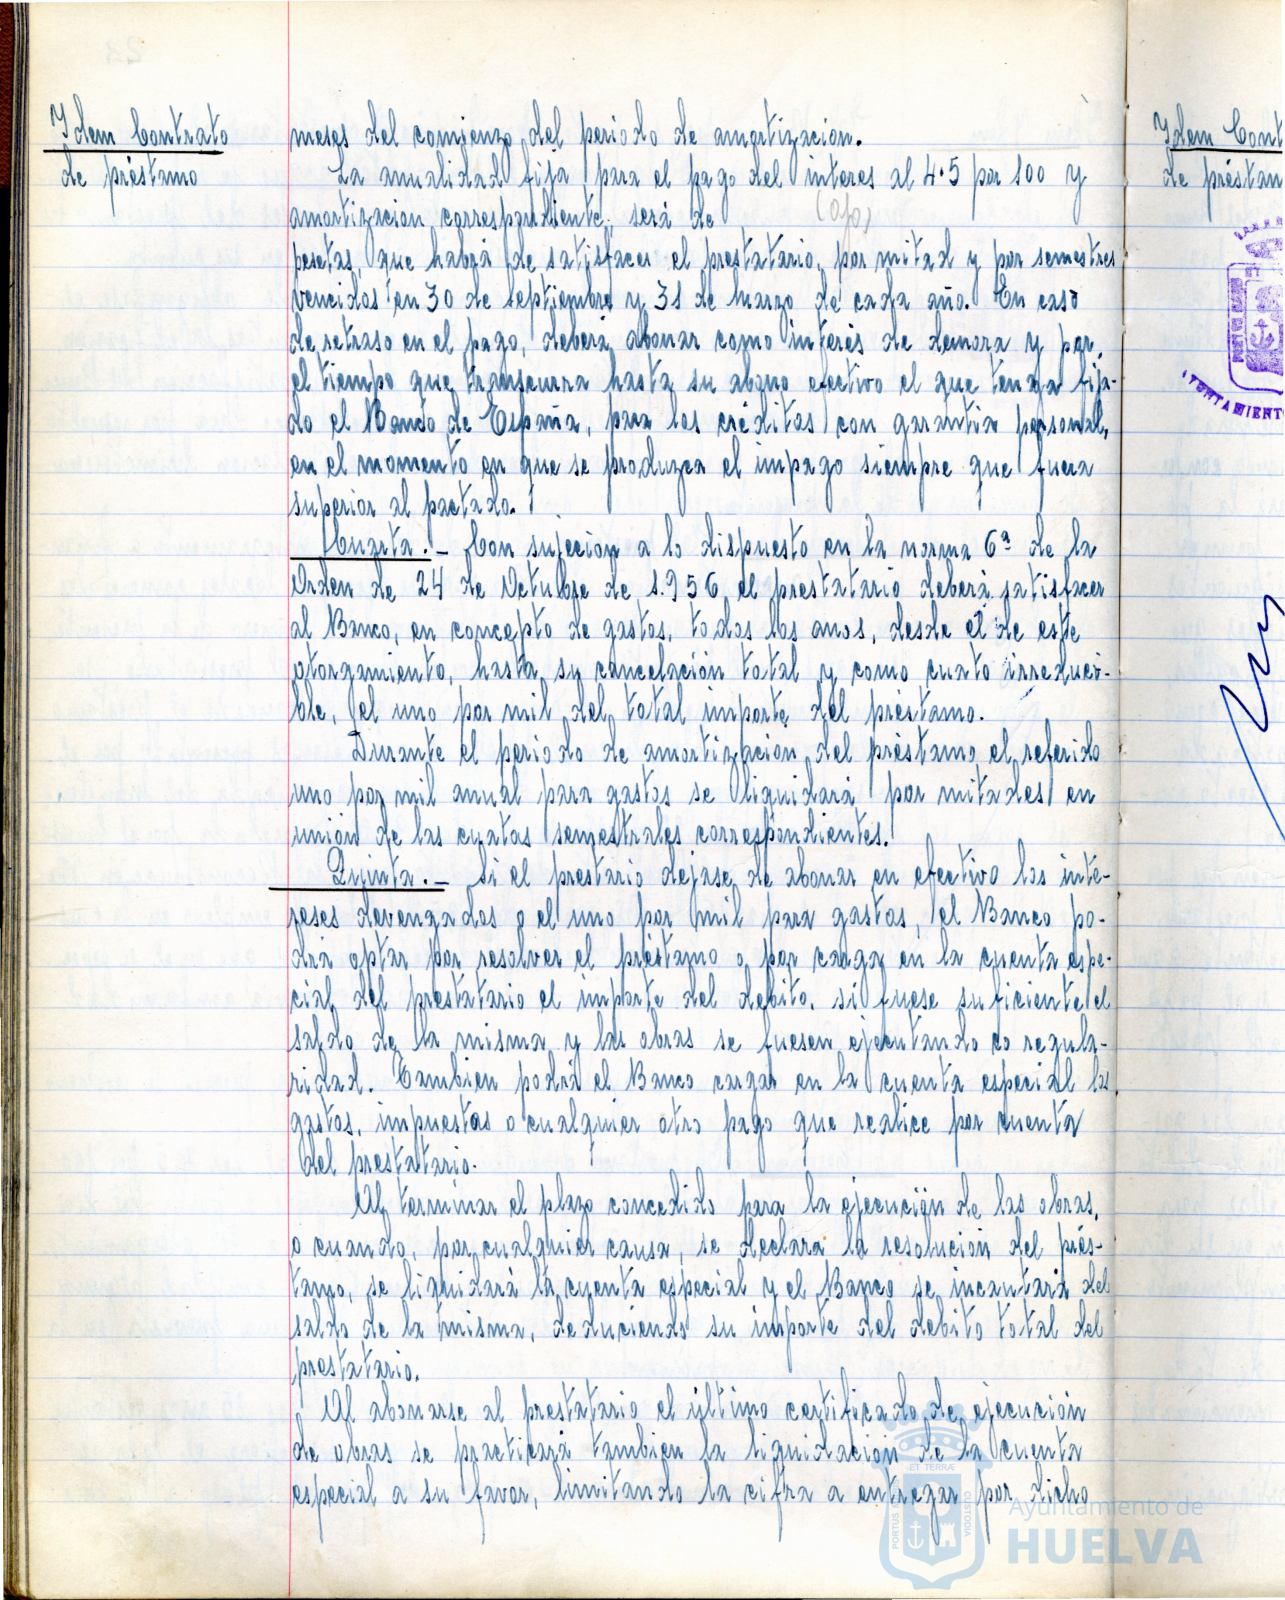 Idem Contrato
de préstamo
meses del comienzo del periodo de amortización.
La anualidad fija para el pago del interes al 4.5 por 100 y
amortización correspondiente, será de (ojo)
pesetas, que habrá de satisfacer el prestatario, por mitad y por semestres
vencidos en 30 de septiembre y 31 de marzo de cada año. En caso
de retraso en el pago, deberá abonar como interés de demora y por
el tiempo que transcurra hasta su abono efectivo el que tenga fija-
do el Banco de España, para los créditos con garantia personal,
en el momento en que se produzca el impago siempre que fuera
superior al pactado.
Cuarta.- Con sujeción a lo dispuesto en la norma 6ª de la
Orden de 24 de Octubre de 1.956, el prestatario deberá satisfacer
al Banco, en concepto de gastos, todos los anos, desde el de este
otorgamiento, hasta su cancelación total y como cuato irreduci-
ble, el uno por mil del total importe del préstamo.
Durante el periodo de amortización del préstamo, el referido
uno por mil anual para gastos se liquidará por mitades en
unión de las cuotas semestrales correspondientes.
Quinta.- Si el prestario dejase de abonar en efectivo los inte-
reses devengados o el uno por mil para gastos, el Banco po-
drá optar por resolver el préstamo o por cargar en la cuenta espe-
cial del prestatario el importe del debito, si fuese suficiente el
saldo de la misma y las obras se fuesen ejecutando co regula-
ridad. Tambien podrá el Banco cargar en la cuenta especial los
gastos, impuestos o cualquier otro pago que realice por cuenta
del prestatario.
Al terminar el plazo concedido para la ejecución de las obras,
o cuando, por cualquier causa, se declara la resolución del prés-
tamo, se liquidará la cuenta especial y el Banco se incautará del
saldo de la misma, deduciendo su importe del debito total del
prestatario.
Al abonarse al prestatario el último certificado de ejecución
de obras se practicará tambien la liquidación de la cuenta
especial a su favor, limitando la cifra a entregar por dicho
Idem Cont
de préstam
PORTUS
CUSTODIA
ET TERRÆ
Ayuntamiento de
HUELVA